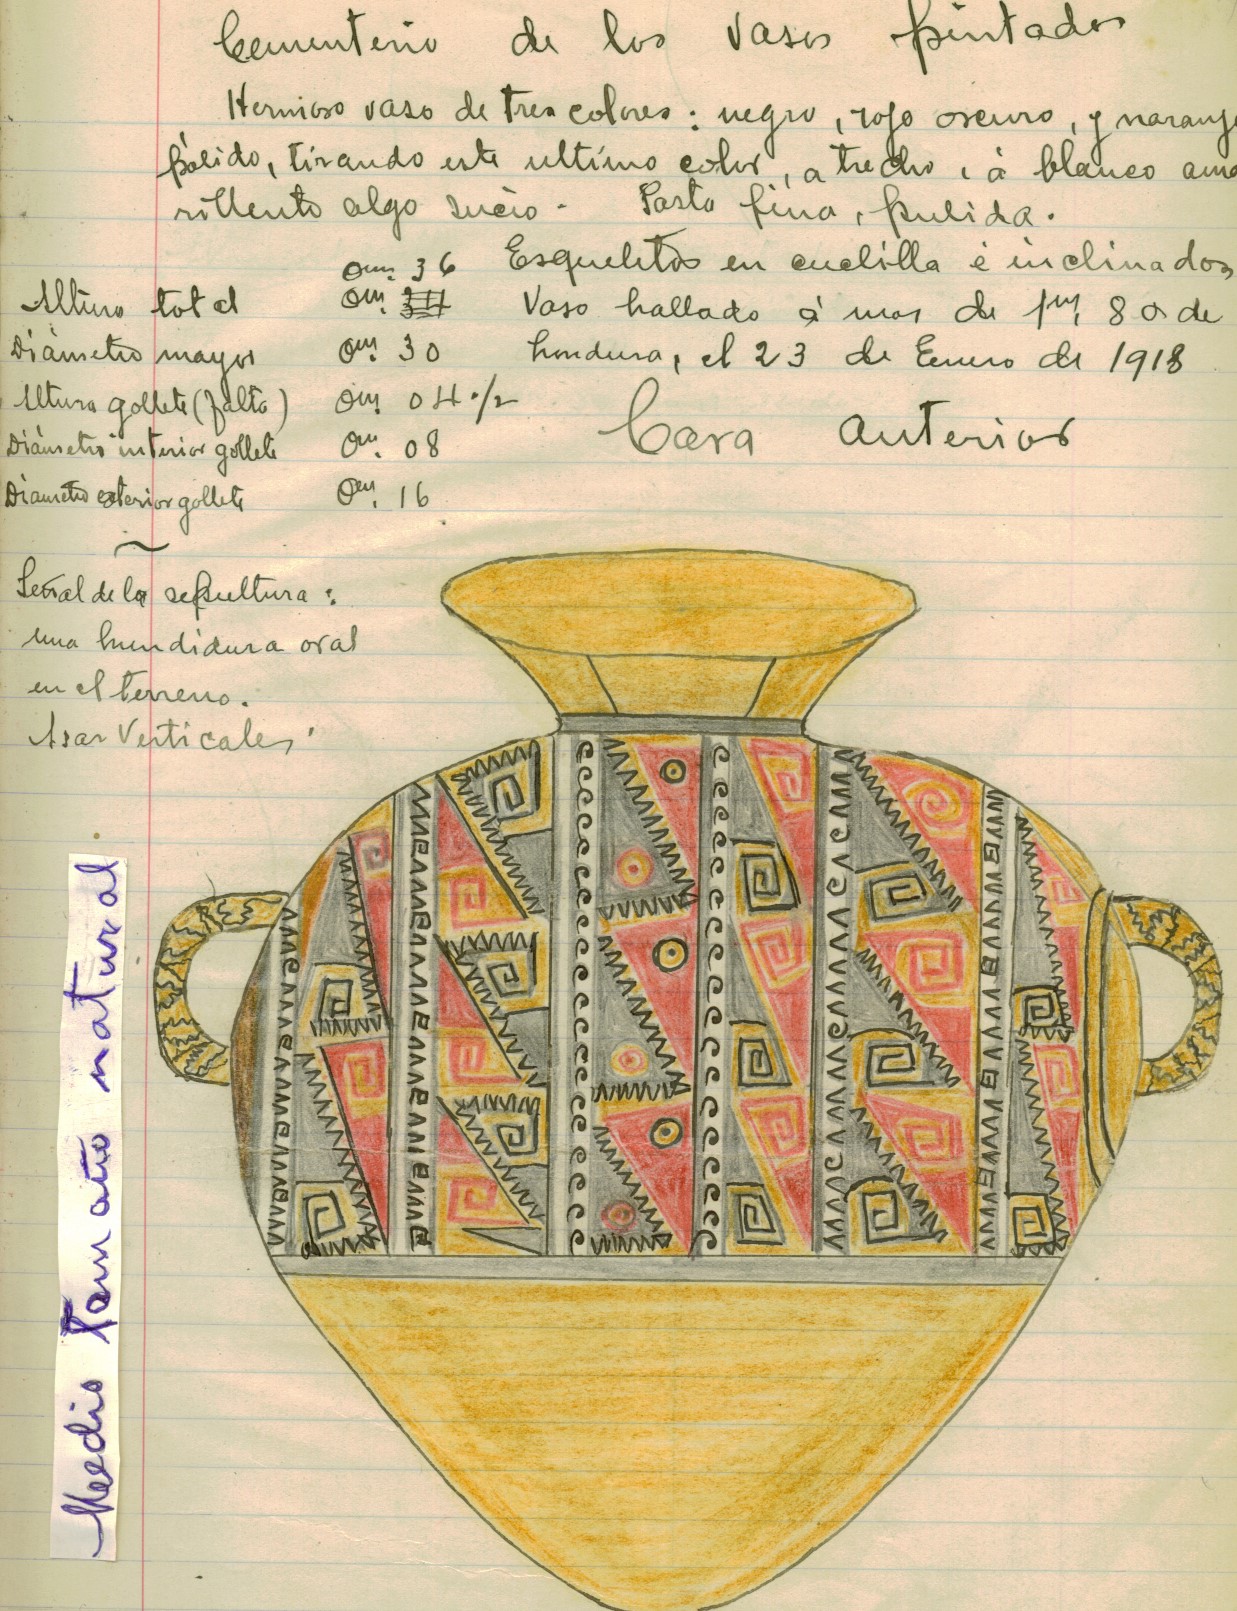 Cementerio de los vasos pintados
Hermoso vaso de tres colores: negro, rojo oscuro, y naranj
pálido, tirando este ultimo color, a trecho, á blanco ama
rillento algo sucio. Pasta fina, pulida.
Esqueletos en cuclilla é inclinados,
Vaso hallado á mas de 1m, 80 de
hondura, el 23 de Enero de 1918
0m. 36
Altura total 0m.
Diámetro mayor 0m. 30
Altura gollete (falta) 0m. 04 ·/2
Diámetro interior gollete 0m. 08
Diametro exterior gollete 0m. 16
Cara anterior
Señal de la sepultura:
una hundidura oval
en el terreno.
Asas Verticales,
Medio tamaño natural